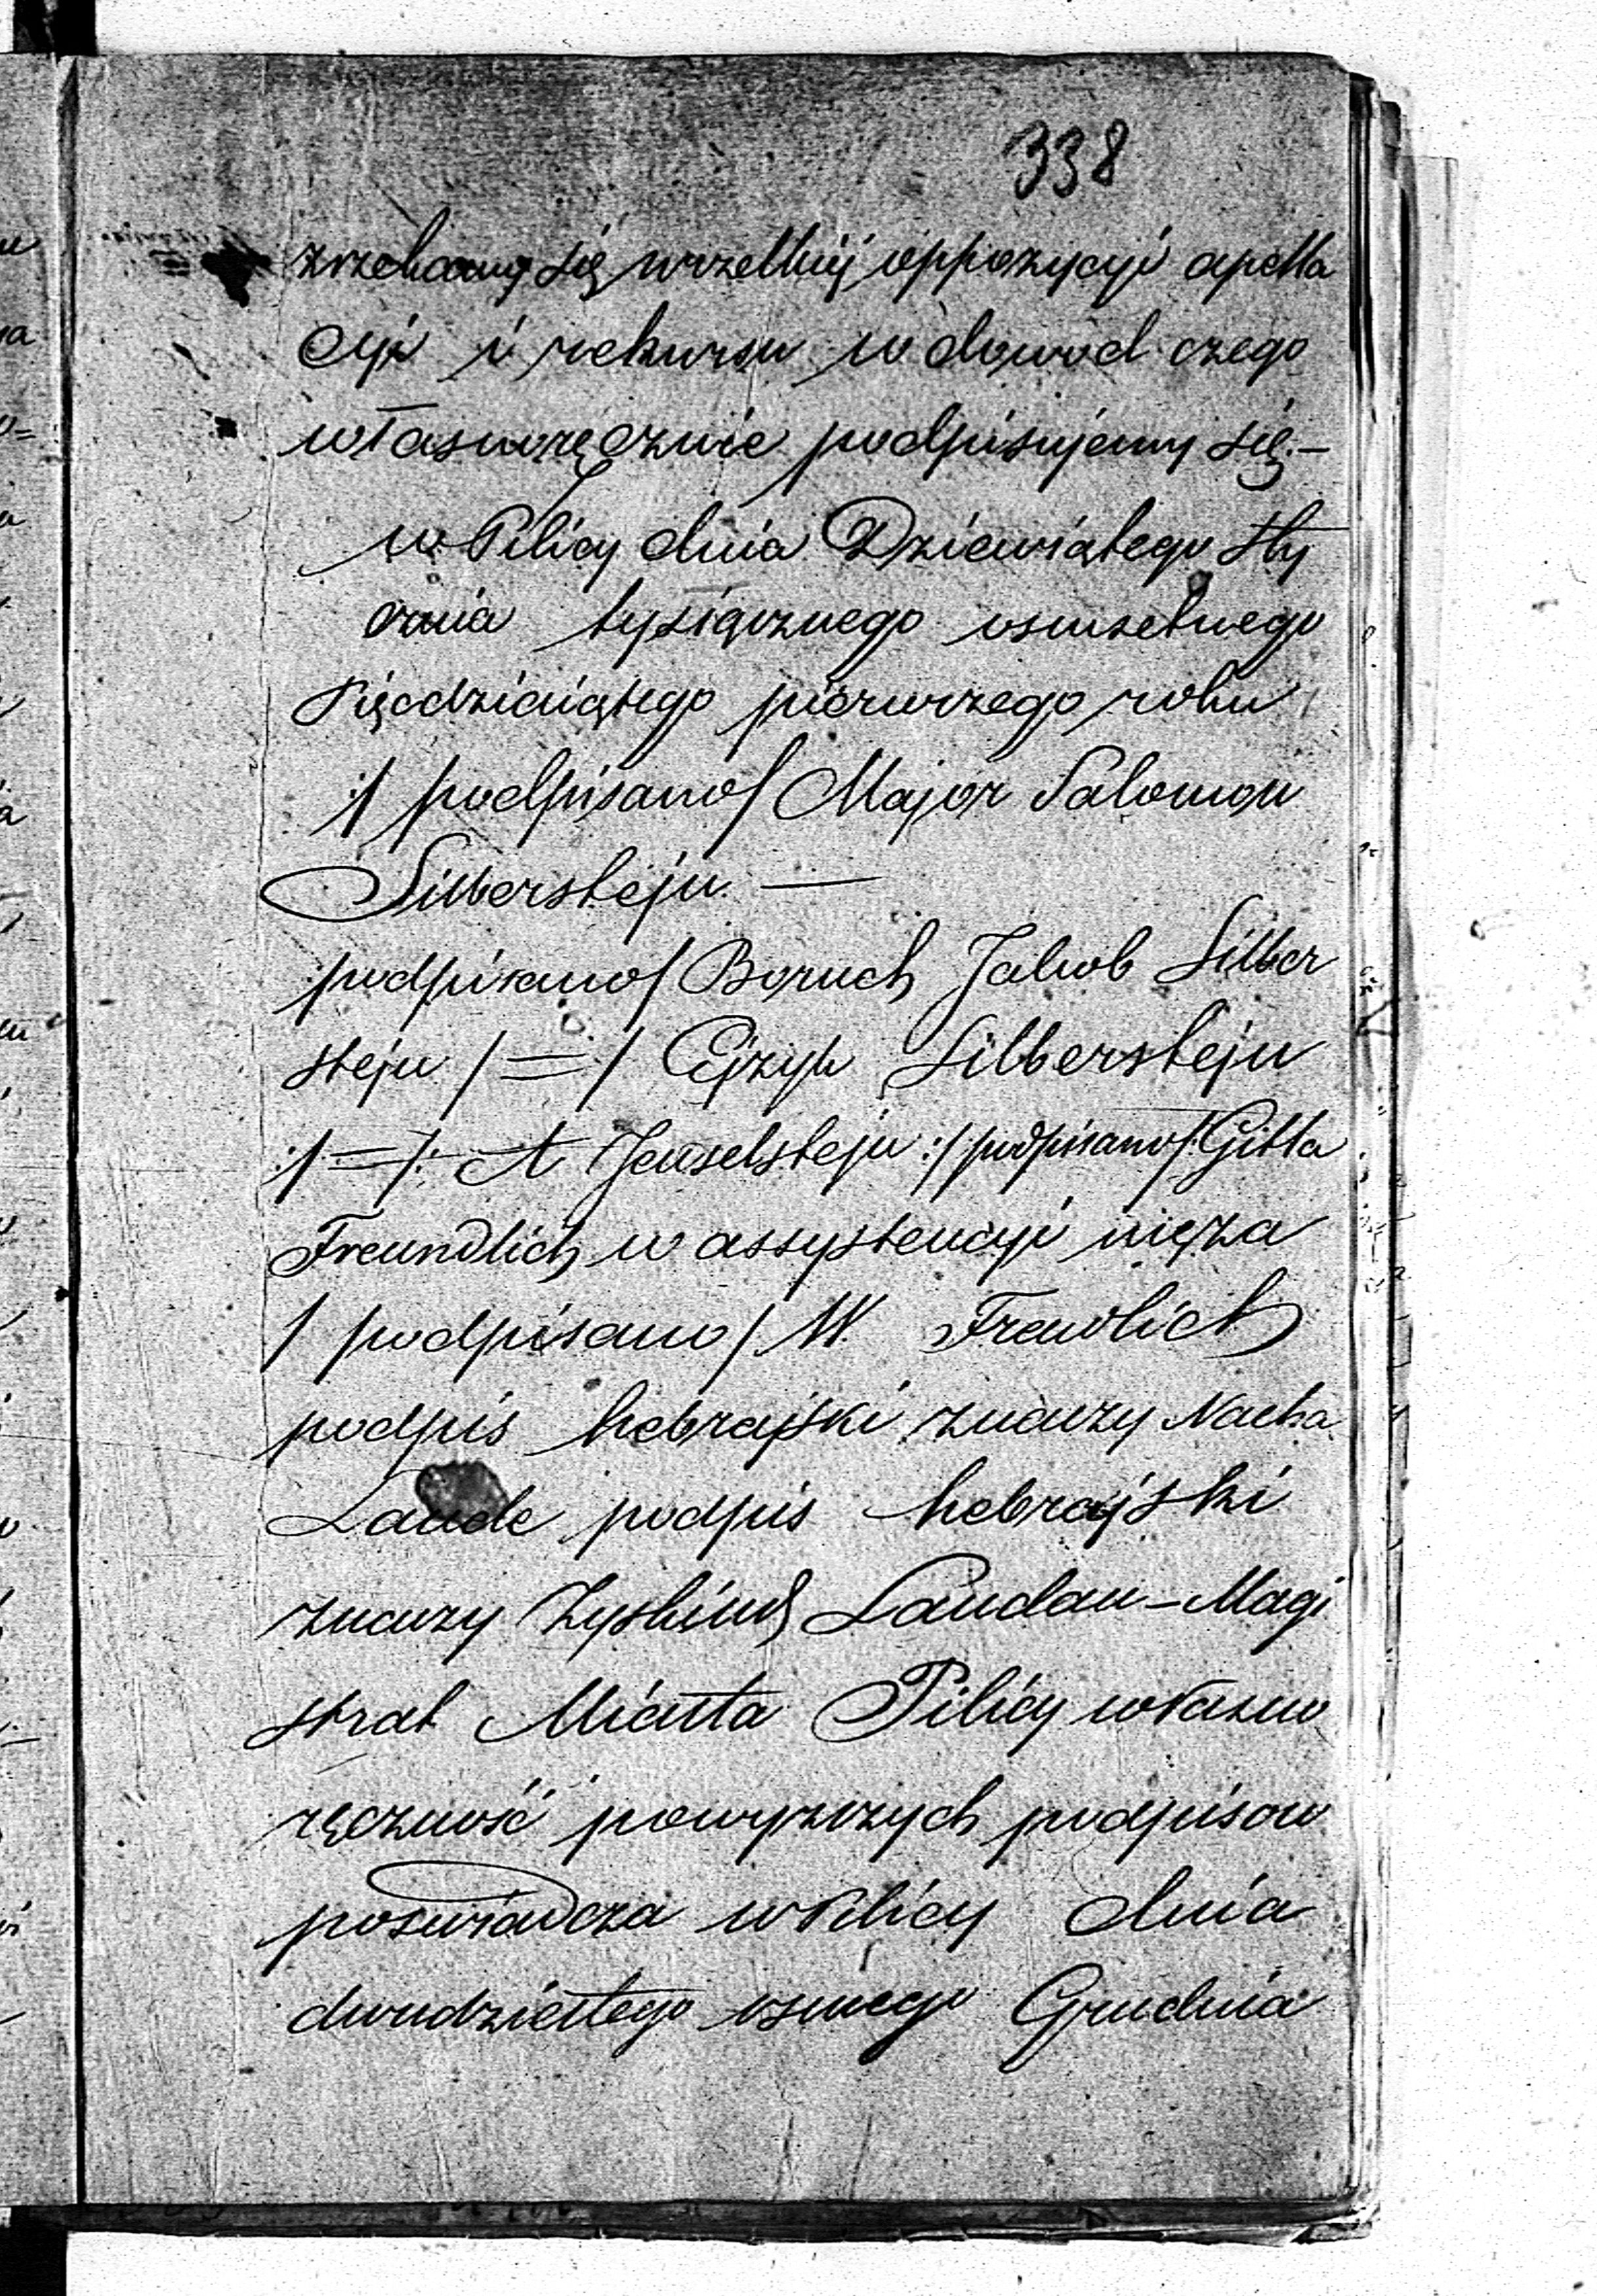 338
zrzekamy się wrzelkiej oppozycyi apella
cyi i rekursu w dowód czego
własnoręcznie podpisujemy się.—
w Pilicy dnia Dziewiątego Sty
cznia tysiącznego osmsetnego
Pięcdziesiątego pierwszego roku
:/ podpisano/ Major Salomon
Silbersteju —
podpisano/ Boruch Jakob Silber
steju / = / Ejzyk Silbersteju
:/ = /: A :/ podpisano/: Gitla
Freundlich w assystencyi męża
/ podpisano / W. Freudlich
podpis hebrajski znaczy Nacha
Laude podpis hebrajski
znaczy Zyskind Landau – Magi
strat Miasta Pilicy własno
ręczność powyższych podpisow
poswiadcza w Pilicy dnia
dwudziestego osmego Grudnia